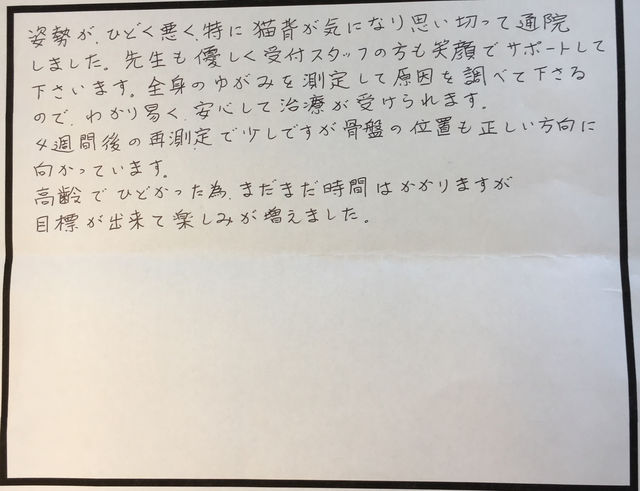 姿勢が、ひどく悪く、特に猫背が気になり思い切って通院
しました。先生も優しく受付スタッフの方も笑顔でサポートして
下さいます。全身のゆがみを測定して原因を調べて下さる
ので、わかり易く、安心して治療が受けられます。
4週間後の再測定で少しですが骨盤の位置も正しい方向に
向かっています。
高齢でひどかった為、まだまだ時間はかかりますが
目標が出来て楽しみが増えました。